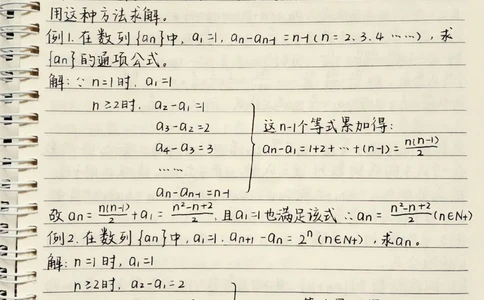 用这种方法求解。
例1.在数列{an}中,a₁=1,an-an-1=n-1(n=2.3.4……),求
{an}的通项公式。
解:∵n=1时,a₁=1
n≥2时,a₂-a₁=1
a₃-a₂=2
这n-1个等式累加得:
a₄-a₃=3
an-a₁=1+2+…+(n-1)=n(n-1)/2
……
an-an-1=n-1
故an=n(n-1)/2+a₁=n²-n+2/2,且a₁=1也满足该式∴an=n²-n+2/2(n∈N+)
例2.在数列{an}中,a₁=1,an+1-an=2ⁿ(n∈N+),求an。
解:n=1时,a₁=1
n≥2时,a₂-a₁=2